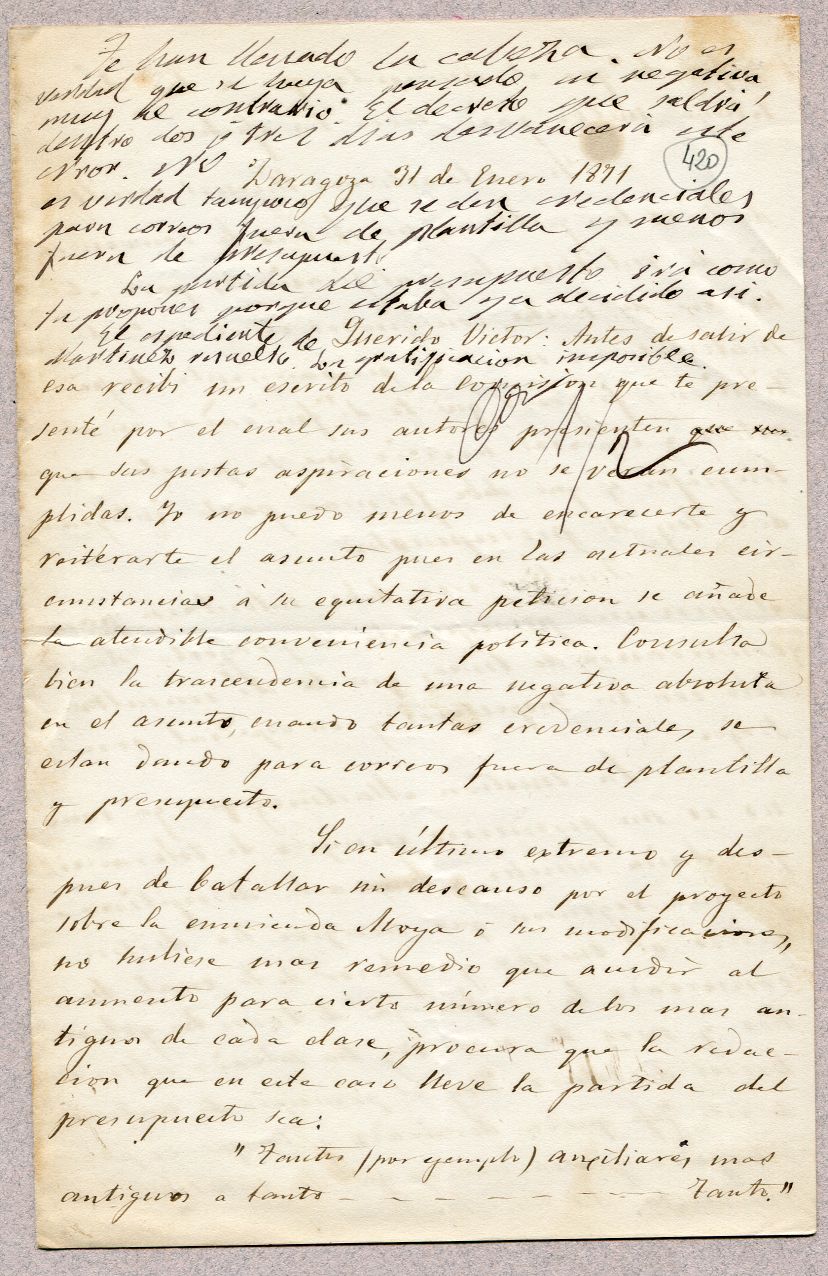 Te han llenado la cabeza. No es
verdad que se haya pensado en negativa,
muy al contrario. El decreto que saldrá
dentro dos ó tres dias desvanecerá este
error. No
420
Zaragoza 31 de Enero 1871
es verdad tampoco que se den credenciales
para correos fuera de plantilla y menos
fuera de presupuesto
La partida del presupuesto irá como
tu propones porque estaba ya decidido asi.
El espediente de
Martinez resuelto. La gratificacion imposible.
Querido Victor: Antes de salir de
esa recibi un escrito de la Comision que te pre-
senté por el cual sus autores presienten que
que sus justas aspiraciones no se verán cum-
plidas. Yo no puedo menos de encarecerte y
reiterarte el asunto pues en las actuales cir-
cunstancias á su equitativa peticion se añade
la atendible conveniencia politica. Consulta
bien la trascendencia de una negativa absoluta
en el asunto, cuando tantas credenciales se
estan dando para correos fuera de plantilla
y presupuesto.
Si en último extremo y des-
pues de batallar sin descanso por el proyecto
sobre la enmienda Moya ó sus modificaciones,
no hubiese mas remedio que acudir al
aumento para cierto número de los mas an-
tiguos de cada clase, procura que la redac-
cion que en este caso lleve la partida del
presupuesto sea:
"Tantos (por ejemplo) auxiliares mas
antiguos a tanto - - - - - - - Tanto."